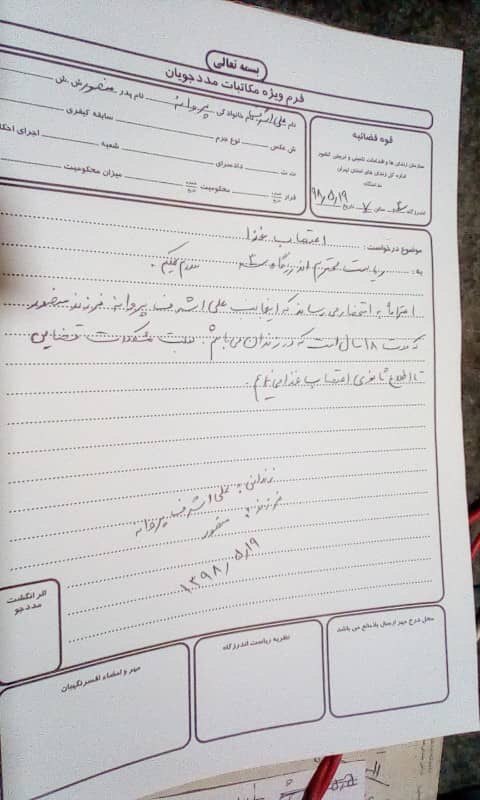 بسمه تعالی
فرم ویژه مکاتبات مددجویان
قوه قضائیه
سازمان زندان ها و اقدامات تامینی و تربیتی کشور
اداره کل زندان های استان تهران
ندامتگاه
اندرزگاه ۴ سالن ۷ تاریخ ۹۸/۵/۱۹
نام علی اشرف نام خانوادگی پروانه نام پدر منصور ش.ش
ش عکس نوع جرم سابقه کیفری
مدت دادسرای شعبه اجرای احکا
قرار محکومیت میزان محکومیت
موضوع درخواست : اعتصاب غذا
به : ریاست محترم اندرزگاه ۴ سلام علیکم .
احتراماً به استحضار می رساند که اینجانب علی اشرف پروانه فرزند منصور
که مدت ۱۸ سال است که در زندان می باشم . بابت مشکلات قضایی
تا اطلاع ثانوی اعتصاب غذا می نمایم .
زندانی : علی اشرف پروانه
فرزند : منصور
۱۳۹۸/۵/۱۹
اثر انگشت
مددجو
مهر و امضاء افسر نگهبان
نظریه ریاست اندرزگاه
محل درج مهر ارسال بلامانع می باشد